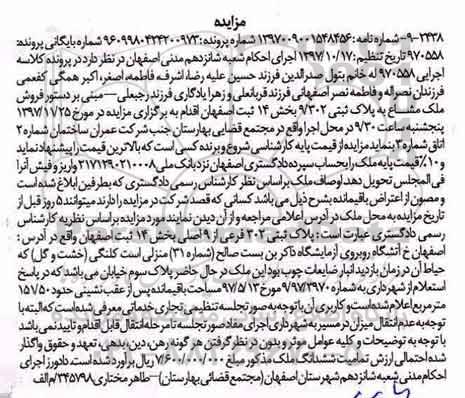 مزایده
۲۴۳۸-۹-شماره نامه: ۱۳۹۷۰۰۹۰۰۱۵۴۸۴۵۶ شماره پرونده: ۹۶۰۹۹۸۰۴۲۴۲۰۰۹۷۳ شماره بایگانی پرونده:
۹۷۰۵۵۸ تاریخ تنظیم: ۱۳۹۷/۱۰/۱۷ اجرای احکام شعبه شانزدهم مدنی اصفهان در نظر دارد در پرونده کلاسه
اجرایی ۹۷۰۵۵۸ له خانم بتول صدرالدین فرزند حسین علیه رضا، اشرف، فاطمه، اصغر، اکبر همگی کفعمی
فرزندان نصراله و فاطمه نصر اصفهانی فرزند قربانعلی و زهرا یادگاری فرزند رجبعلی-مبنی بر دستور فروش
ملک مشاع به پلاک ثبتی ۹/۳۰۲ بخش ۱۴ ثبت اصفهان اقدام به برگزاری مزایده در مورخ ۱۳۹۷/۱۱/۲۵
پنجشنبه ساعت ۹/۳۰ در محل اجرا واقع در مجتمع قضایی بهارستان جنب شرکت عمران ساختمان شماره ۲
اتاق شماره ۳ بنماید مزایده از قیمت پایه کارشناسی شروع و برنده کسی است که بالاترین قیمت را پیشنهاد نماید
و ۱۰٪ قیمت پایه ملک را بحساب سپرده دادگستری اصفهان نزد بانک ملی ۲۱۷۱۲۹۰۲۱۰۰۰۸ واریز و فیش آنرا
فی المجلس تحویل دهد اوصاف ملک براساس نظر کارشناس رسمی دادگستری که بطرفین ابلاغ شده است
و مصون از اعتراض باقیمانده بشرح ذیل می باشد کسانی که قصد شرکت در مزایده را دارند میتوانند ۵ روز قبل از
تاریخ مزایده به محل ملک در آدرس اعلامی مراجعه و از آن دیدن نمایند مورد مزایده براساس نظریه کارشناس
رسمی دادگستری عبارت است: پلاک ثبتی ۳۰۲ فرعی از ۹ اصلی بخش ۱۴ ثبت اصفهان واقع در آدرس :
اصفهان خ آتشگاه روبروی آزمایشگاه ذاکر بن بست صالح (شماره ۳۱) منزلی است کلنگی (خشت و گل) که
حیاط آن در زمان بازدید انبار ضایعات چوب بود این ملک در حال حاضر پلاک سوم خیابان می باشد که در پاسخ
استعلام از شهرداری به شماره ۹/۹۷/۲۹۷۰ مورخ ۹۷/۵/۱۳ مساحت باقیمانده پس از عقب نشینی حدود ۱۵۷/۵۰
متر مربع اعلام شده است و کاربری آن با توجه به صورتجلسه تنظیمی تجاری خدماتی معرفی شده است که البته با
توجه به عدم انتقال میزان در مسیر به شهرداری اجرای مفاد صورتجلسه تا مرحله انتقال قابل اقدام و تایید نمی باشد
با توجه به توضیحات و کلیه عوامل موثر و بدون در نظر گرفتن هر گونه رهن، دین، بدهی، تعهد و حقوق واگذار
شده احتمالی ارزش تمامیت ششدانگ ملک مذکور مبلغ ۷/۶۰۰/۰۰۰/۰۰۰ ریال برآورد شده است. دادورز اجرای
احکام مدنی شعبه شانزدهم شهرستان اصفهان (مجتمع قضائی بهارستان)-طاهر مختاری ۳۴۵۷۹۸/م الف